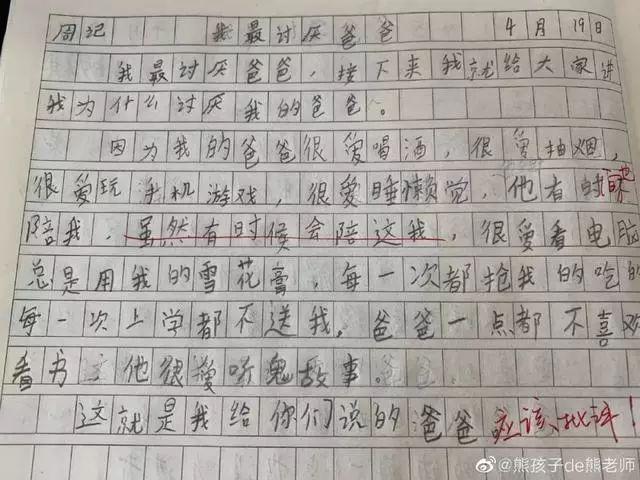 周记 我最讨厌爸爸 4月19日
我最讨厌爸爸，接下来我就给大家讲
我为什么讨厌我的爸爸。
因为我的爸爸很爱喝酒，很爱抽烟，
很爱玩手机游戏，很爱睡懒觉，他有时也
陪我，虽然有时候会陪这我，很爱看电脑
总是用我的雪花膏，每一次都抢我的吃的
每一次上学都不送我，爸爸一点都不喜欢
看书 他很爱听鬼故事。
这就是我给你们说的爸爸 应该批评！
@熊孩子de熊老师